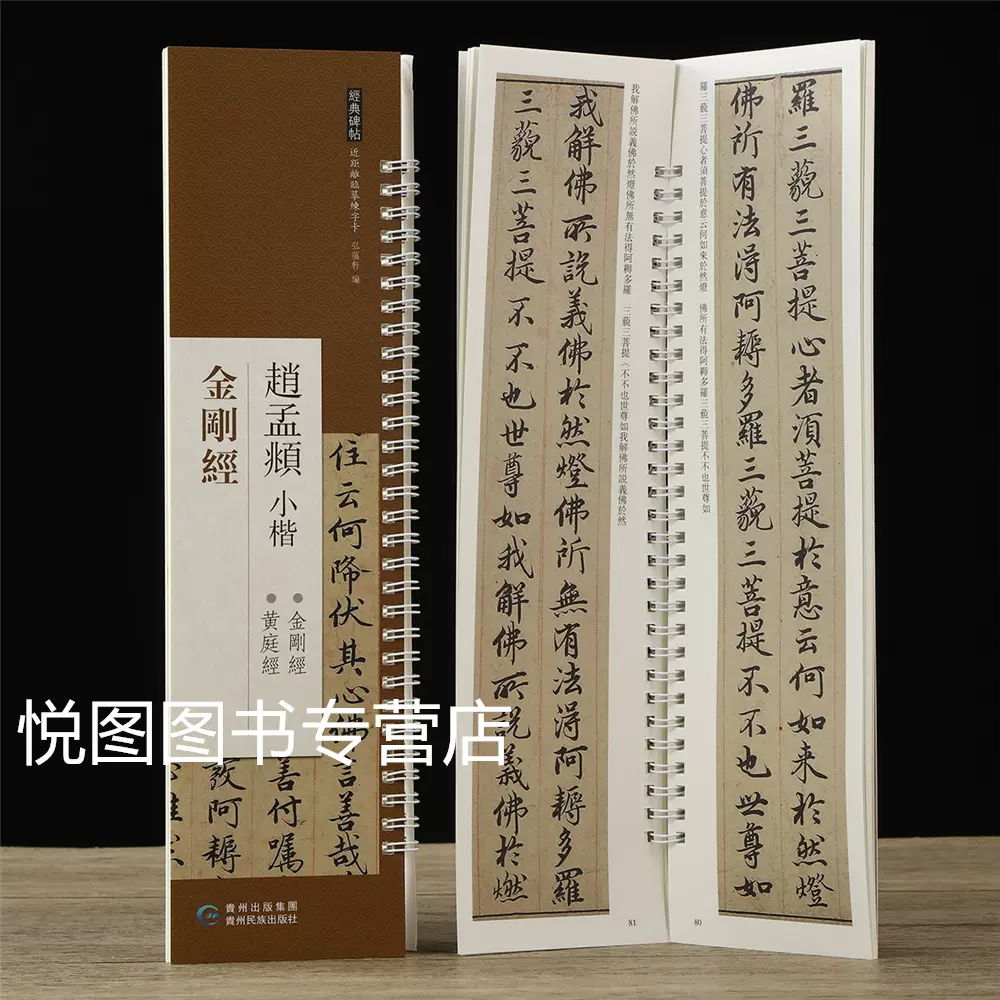 經典碑帖
近距離臨摹練字卡 弘蘊軒 編
趙孟頫 小楷
金剛經
●金剛經
●黄庭經
住云何降伏其心佛言善哉
善付囑
發阿耨
貴州出版集團
貴州民族出版社
悦图图书专营店
羅三藐三菩提心者須菩提於意云何如来於然燈
佛所有法淂阿耨多羅三藐三菩提不不也世尊如
羅三藐三菩提心者須菩提於意云何如來於然燈 佛所有法得阿耨多羅三藐三菩提不不也世尊如
80
我解佛所説義佛於然燈佛所無有法淂阿耨多羅
三藐三菩提不不也世尊如我解佛所説義佛於燃
我解佛所説義佛於然燈佛所無有法得阿耨多羅 三藐三菩提（不不也世尊如我解佛所説義佛於然
81